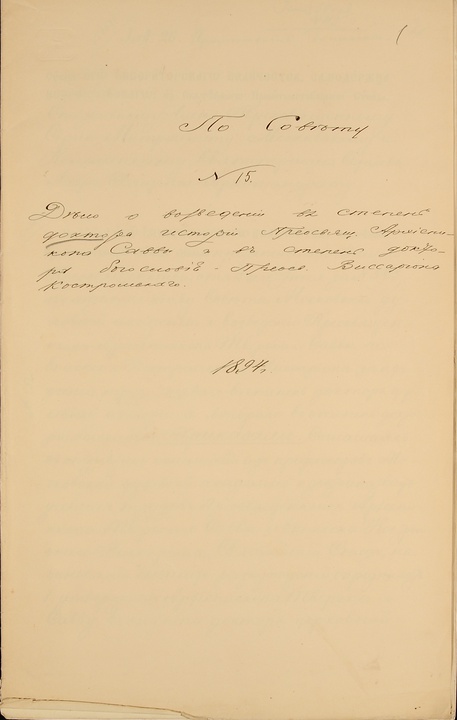 По Совѣту
N 15.
Дѣло о возведеніи въ степень
доктора исторіи Преосвящ. Архіепис-
копа Саввы а въ степень докто-
ра богословія - Преосв. Виссаріона
Костромскаго.
1894 г.